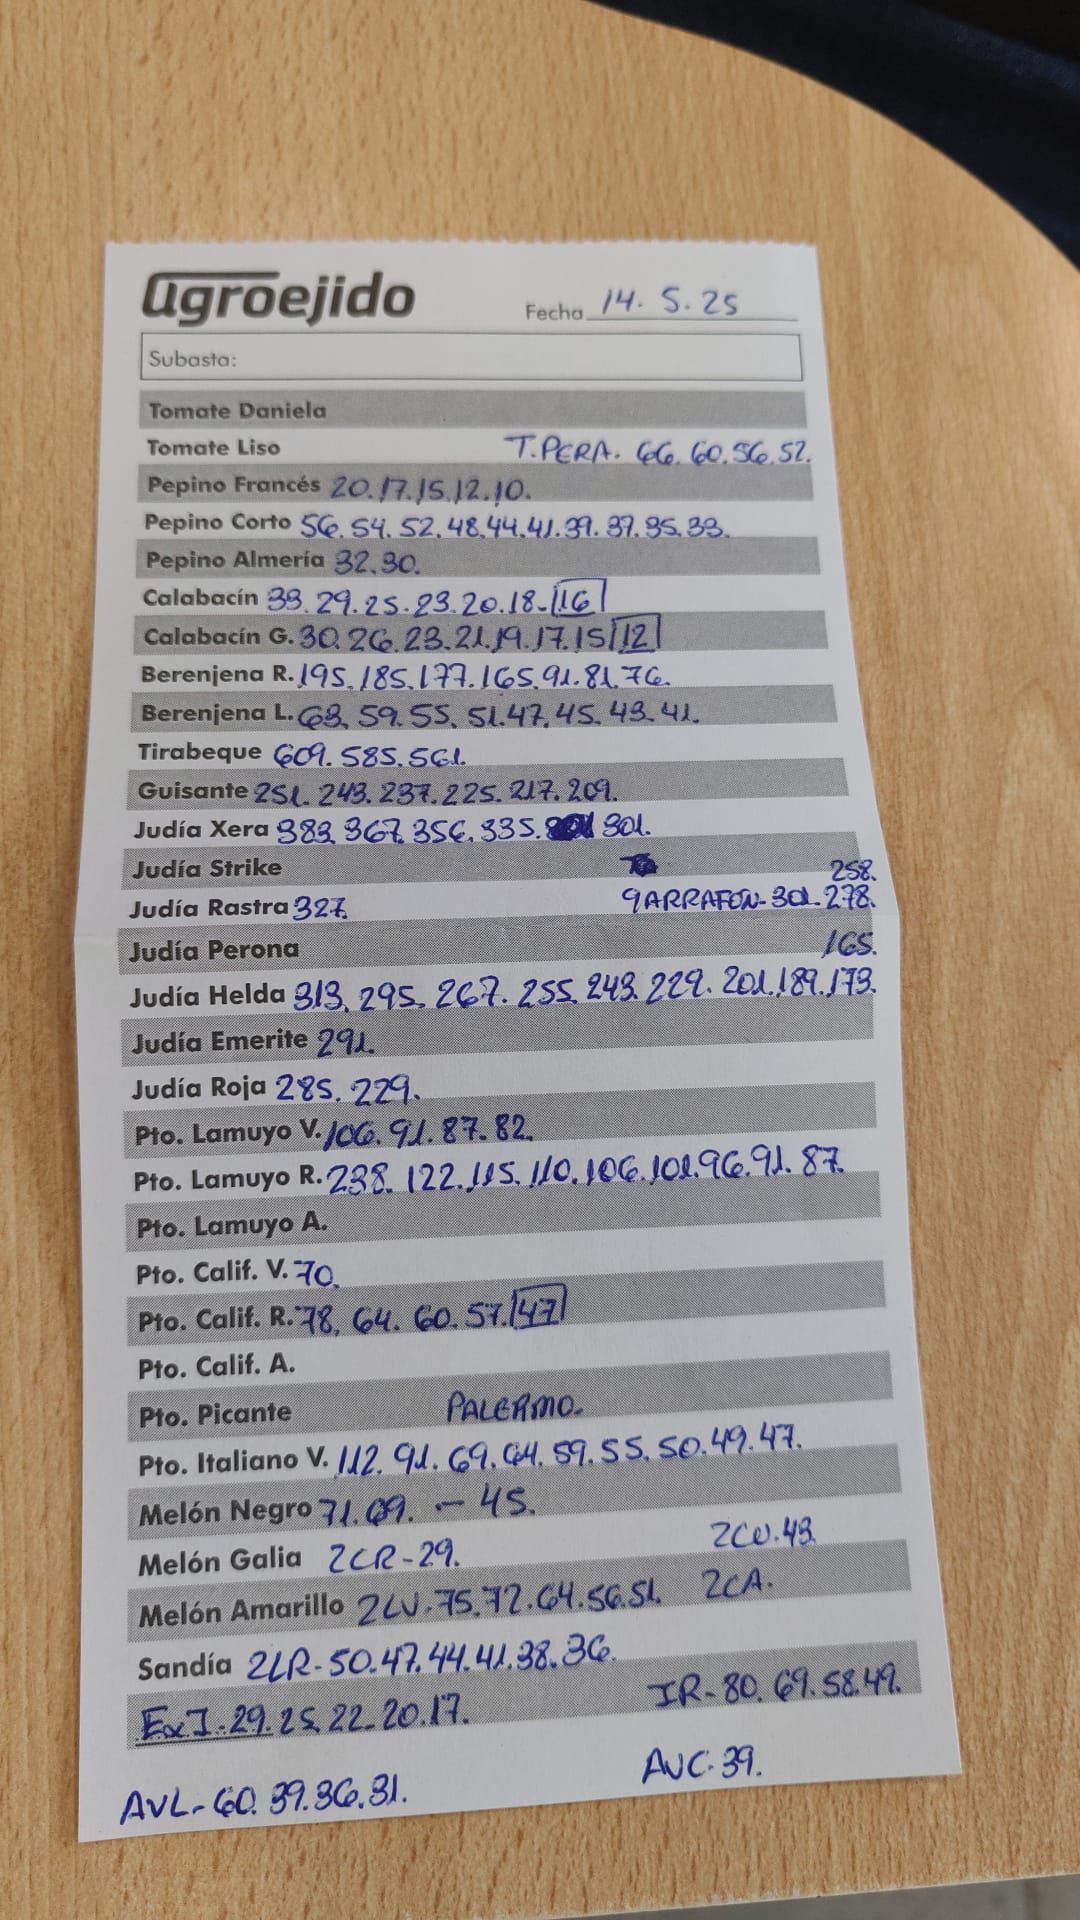 agroejido Fecha 14. 5. 25
Subasta:
Tomate Daniela
Tomate Liso T.PERA. 66. 60. 56. 52.
Pepino Francés 20. 17. 15. 12. 10.
Pepino Corto 56. 54. 52. 48. 44. 41. 39. 37. 35. 33.
Pepino Almería 32. 30.
Calabacín 33. 29. 25. 23. 20. 18. 16
Calabacín G. 30. 26. 23. 21. 19. 17. 15 12
Berenjena R. 195. 185. 177. 165. 91. 81. 76.
Berenjena L. 63. 59. 55. 51. 47. 45. 43. 41.
Tirabeque 609. 585. 561.
Guisante 251. 243. 237. 225. 217. 209.
Judía Xera 383. 367. 356. 335. 301.
Judía Strike 258.
Judía Rastra 327. GARRAFON- 301. 278.
Judía Perona 165.
Judía Helda 313. 295. 267. 255. 243. 229. 201. 189. 173.
Judía Emerite 291.
Judía Roja 285. 229.
Pto. Lamuyo V. 106. 91. 87. 82.
Pto. Lamuyo R. 238. 122. 115. 110. 106. 101. 96. 91. 87.
Pto. Lamuyo A.
Pto. Calif. V. 70.
Pto. Calif. R. 78. 64. 60. 57. 47
Pto. Calif. A.
Pto. Picante PALERMO.
Pto. Italiano V. 112. 91. 69. 64. 59. 55. 50. 49. 47.
Melón Negro 71. 69. - 45.
Melón Galia 2CR-29. 2CV. 43.
Melón Amarillo 2LV. 75. 72. 64. 56. 51. 2CA.
Sandía 2LR- 50. 47. 44. 41. 38. 36.
ExI. 29. 25. 22. 20. 17. IR- 80. 69. 58. 49.
AVL- 60. 39. 36. 31. AVC. 39.